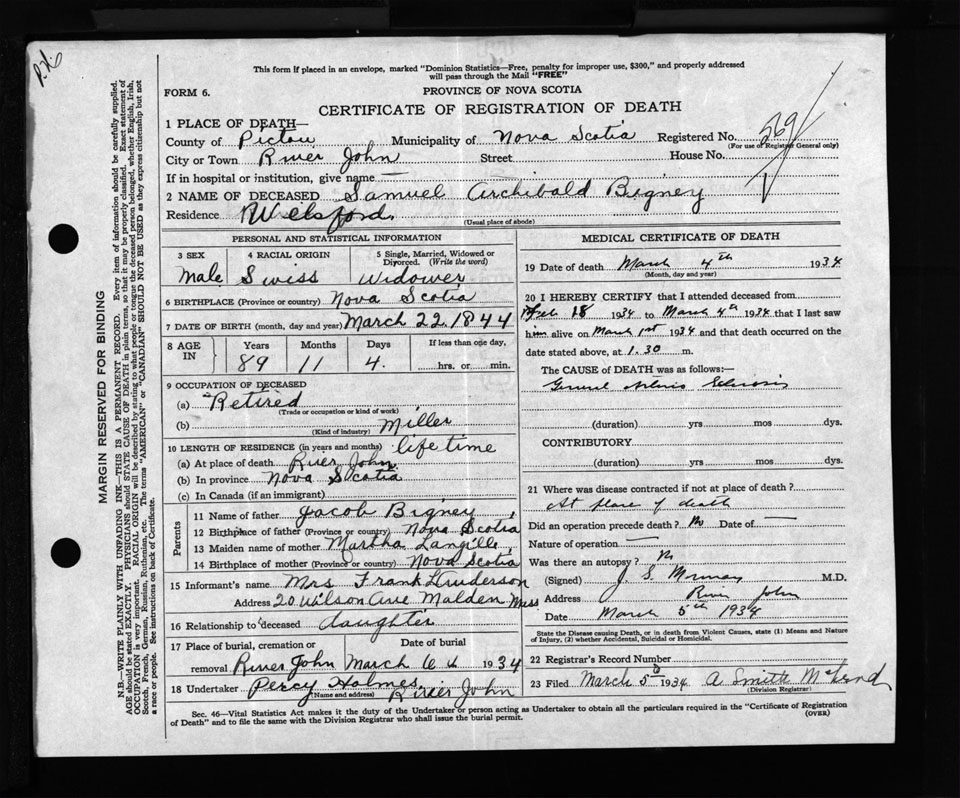 P.H.
This form if placed in an envelope, marked "Dominion Statistics—Free, penalty for improper use, $300," and properly addressed
will pass through the Mail "FREE"
FORM 6. PROVINCE OF NOVA SCOTIA
CERTIFICATE OF REGISTRATION OF DEATH
1 PLACE OF DEATH—
County of Pictou Municipality of Nova Scotia Registered No. 569
(For use of Registrar General only)
City or Town River John Street House No.
If in hospital or institution, give name —
2 NAME OF DECEASED Samuel Archibald Bigney
Residence Welsford
(Usual place of abode)
PERSONAL AND STATISTICAL INFORMATION
3 SEX 4 RACIAL ORIGIN 5 Single, Married, Widowed or
Divorced. (Write the word)
Male Swiss Widower
6 BIRTHPLACE (Province or country) Nova Scotia
7 DATE OF BIRTH (month, day and year) March 22. 1844
8 AGE IN Years Months Days If less than one day,
89 11 4. hrs. or min.
9 OCCUPATION OF DECEASED
(a) Retired
(Trade or occupation or kind of work)
(b) Miller
(Kind of industry)
10 LENGTH OF RESIDENCE (in years and months) life time
(a) At place of death River John
(b) In province Nova Scotia
(c) In Canada (if an immigrant)
Parents
11 Name of father Jacob Bigney
12 Birthplace of father (Province or country) Nova Scotia
13 Maiden name of mother Martha Langille
14 Birthplace of mother (Province or country) Nova Scotia
15 Informant's name Mrs Frank
Address 20 Wilson Ave Malden Mass
16 Relationship to deceased daughter
17 Place of burial, cremation or Date of burial
removal River John March 6 th 1934
18 Undertaker Percy Holmes River John
(Name and address)
MEDICAL CERTIFICATE OF DEATH
19 Date of death March 4th 1934
(Month, day and year)
20 I HEREBY CERTIFY that I attended deceased from
Feb 18 1934 to March 4th 1934 that I last saw
him alive on March 1st 1934 and that death occurred on the
date stated above, at 1.30 m.
The CAUSE OF DEATH was as follows:—
(duration) yrs mos dys.
CONTRIBUTORY
(duration) yrs mos dys.
21 Where was disease contracted if not at place of death?
At place of death
Did an operation precede death? No Date of —
Nature of operation —
Was there an autopsy? No
(Signed) J. S. Murray M.D.
Address River John
Date March 5th 1934
State the Disease causing Death, or in death from Violent Causes, state (1) Means and Nature
of Injury, (2) whether Accidental, Suicidal or Homicidal.
22 Registrar's Record Number
23 Filed March 5 1934 A Smith
(Division Registrar)
Sec. 46—Vital Statistics Act makes it the duty of the Undertaker or person acting as Undertaker to obtain all the particulars required in the "Certificate of Registration
of Death" and to file the same with the Division Registrar who shall issue the burial permit. (OVER)
MARGIN RESERVED FOR BINDING
N.B.—WRITE PLAINLY WITH UNFADING INK—THIS IS A PERMANENT RECORD. Every item of information should be carefully supplied.
AGE should be stated EXACTLY. PHYSICIANS should STATE CAUSE OF DEATH in plain terms, so that it may be properly classified. Exact statement of
OCCUPATION is very important. RACIAL ORIGIN will be described by stating to what people or tongue the deceased person belonged, whether English, Irish,
Scotch, French, German, Russian, Ruthenian, etc. The terms "AMERICAN" or "CANADIAN" SHOULD NOT BE USED as they express citizenship but not
a race or people. See instructions on back of Certificate.